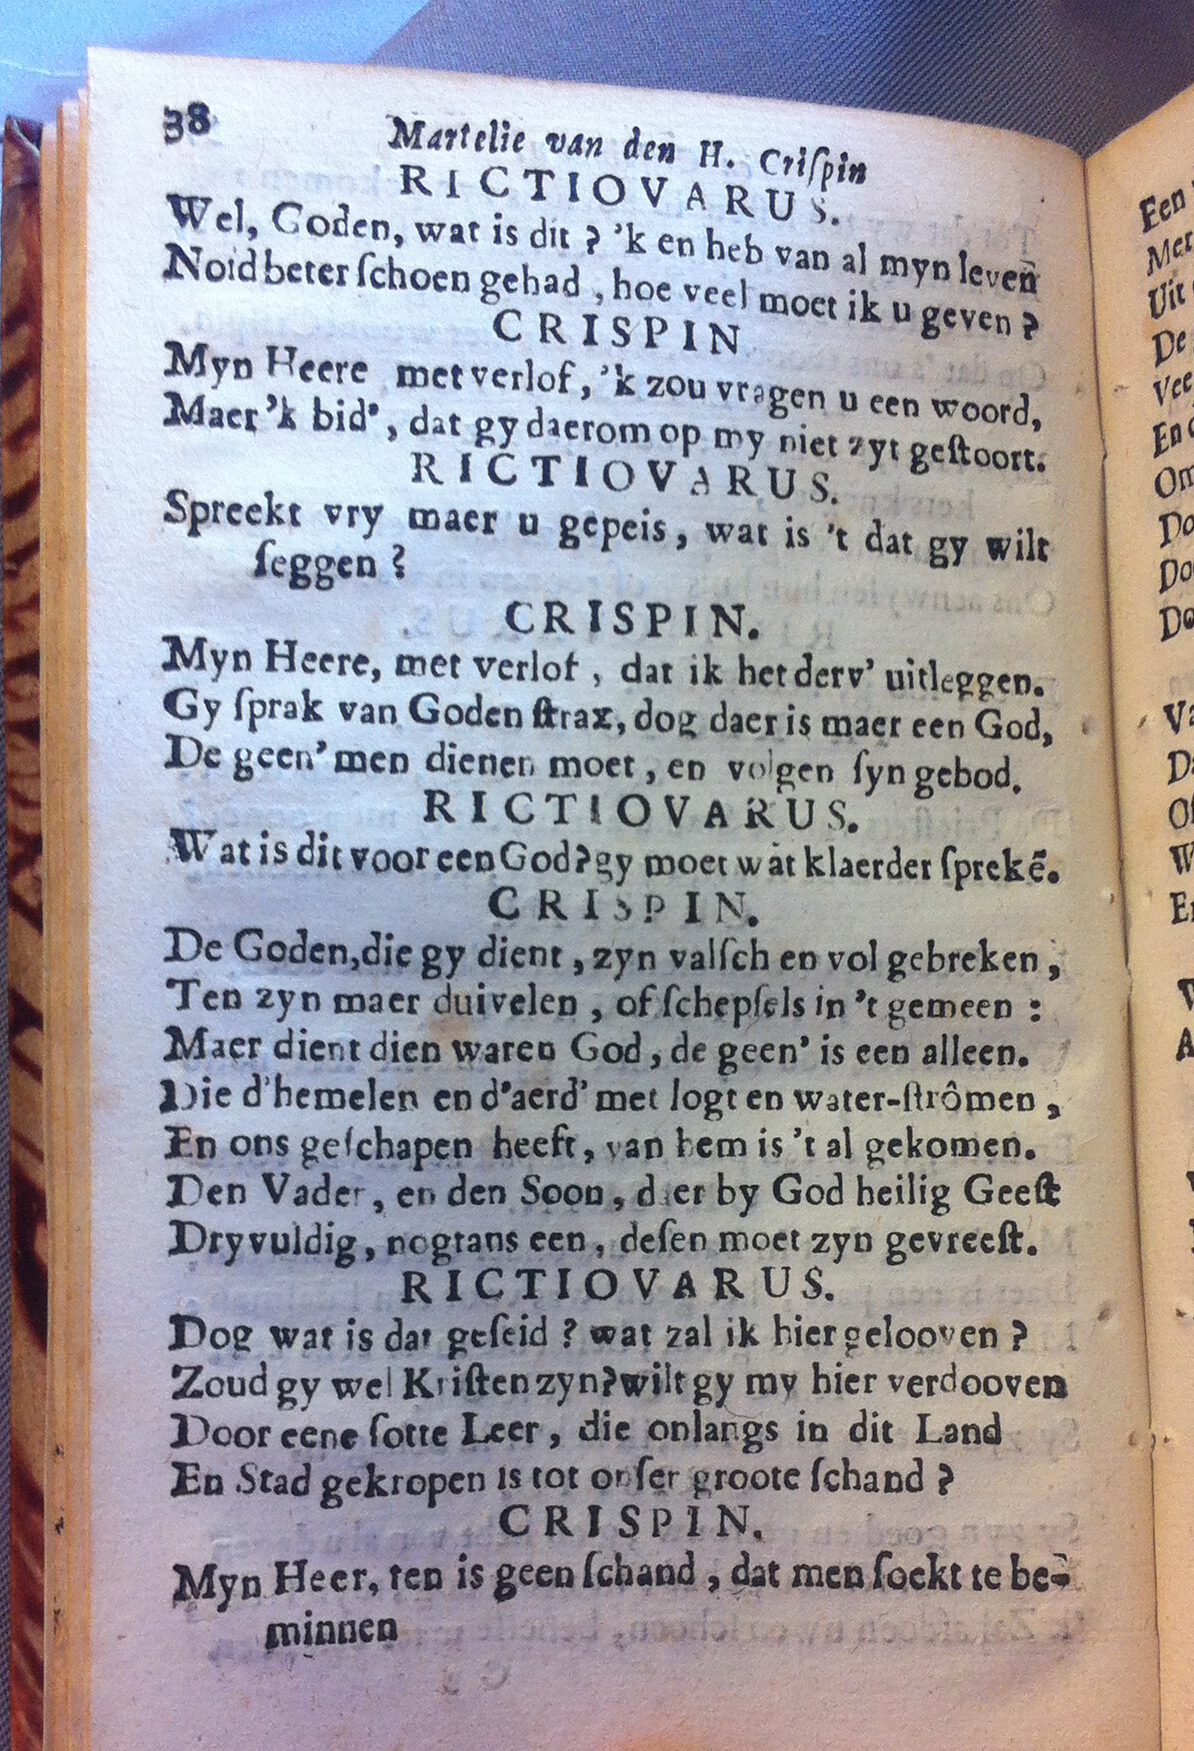 38
Martelie van den H. Criſpin
RICTIOVARUS.
Wel, Goden, wat is dit ? 'k en heb van al myn leveñ
Noid beter ſchoen gehad , hoe veel moet ik u geven ?
CRISPIN
Myn Heere met verlof, 'k zou vragen u een woord,
Maer 'k bid', dat gy daerom op my niet zyt geſtoort.
RICTIOVARUS.
Spreekt vry maer u gepeis, wat is 't dat gy wilt
ſeggen ?
CRISPIN.
Myn Heere, met verlof , dat ik het derv' uitleggen.
Gy ſprak van Goden ſtrax, dog daer is maer een God,
De geen' men dienen moet , en volgen ſyn gebod.
RICTIOVARUS.
Wat is dit voor een God? gy moet wat klaerder ſprekẽ.
CRISPIN.
De Goden, die gy dient , zyn valſch en vol gebreken ,
Ten zyn maer duivelen , of ſchepſels in 't gemeen :
Maer dient dien waren God , de geen' is een alleen.
Die d'hemelen en d'aerd' met logt en water-ſtrômen ,
En ons geſchapen heeft, van hem is 't al gekomen.
Den Vader , en den Soon , daer by God heilig Geeſt
Dryvuldig , nogtans een , deſen moet zyn gevreeſt.
RICTIOVARUS.
Dog wat is dat geſeid ? wat zal ik hier gelooven ?
Zoud gy wel Kriſten zyn? wilt gy my hier verdooven
Door eene ſotte Leer , die onlangs in dit Land
En Stad gekropen is tot onſer groote ſchand ?
CRISPIN.
Myn Heer, ten is geen ſchand , dat men ſoekt te be-
minnen
Een
Uit
De